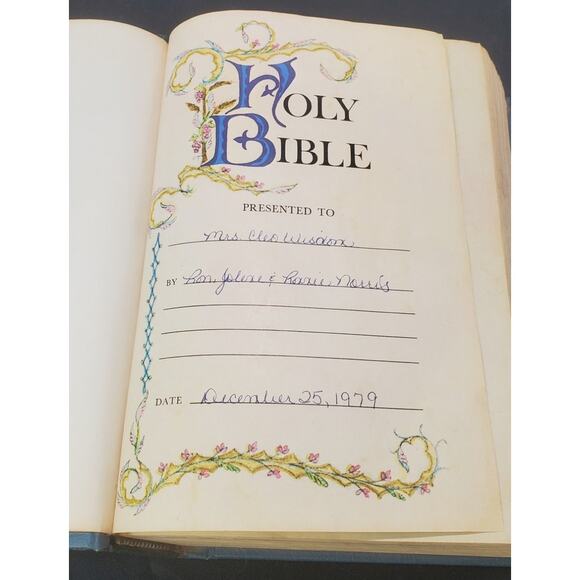 HOLY
BIBLE
PRESENTED TO
Mrs. Cleo Wisdom
BY Ron, Jolene & Ronnie Norris
DATE December 25, 1979